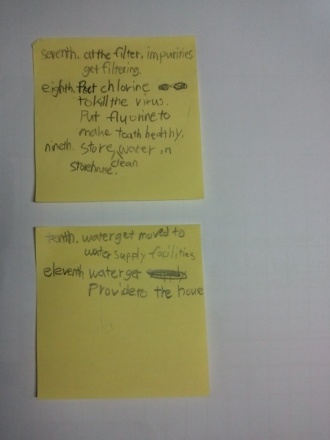 seventh. at the filter, impurities
get filtering.
eighth. Put chlorine
to kill the virus.
Put fluorine to
make teath healthy.
nineth. store water in
clean
storehouse.
tenth. water get moved to
water supply facilities
eleventh water get
Provide to the house